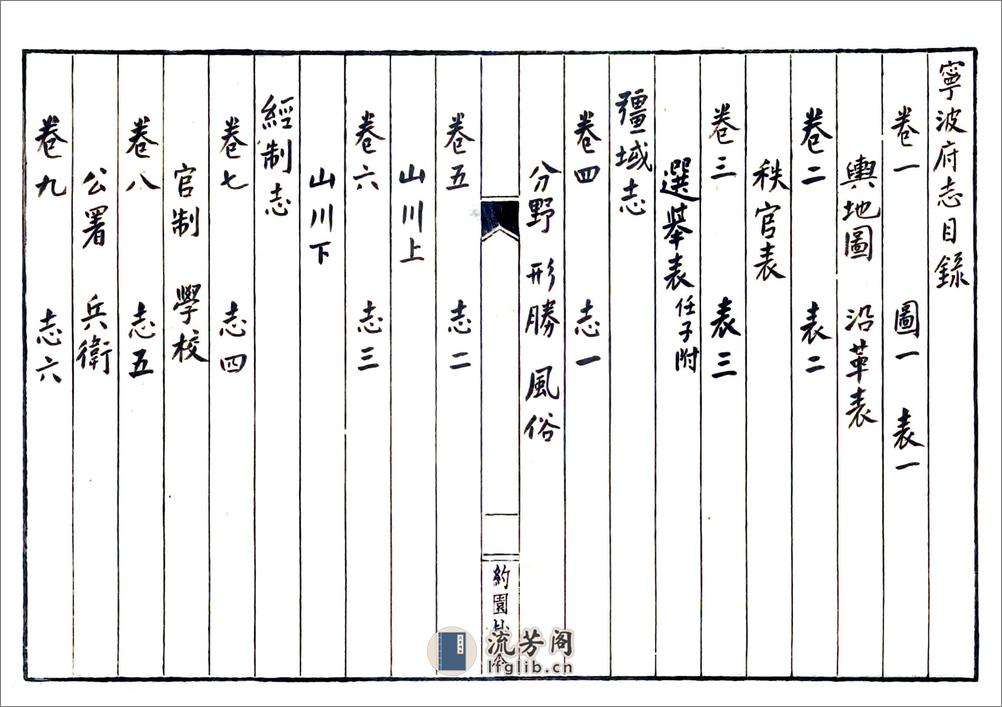 寧波府志目錄
卷一 圖一 表一
輿地圖 沿革表
卷二 表二
秩官表
卷三 表三
選舉表任子附
疆域志
卷四 志一
分野 形勝 風俗
約園
卷五 志二
山川上
卷六 志三
山川下
經制志
卷七 志四
官制 學校
卷八 志五
公署 兵衛
卷九 志六
流芳阁
lfglib.cn